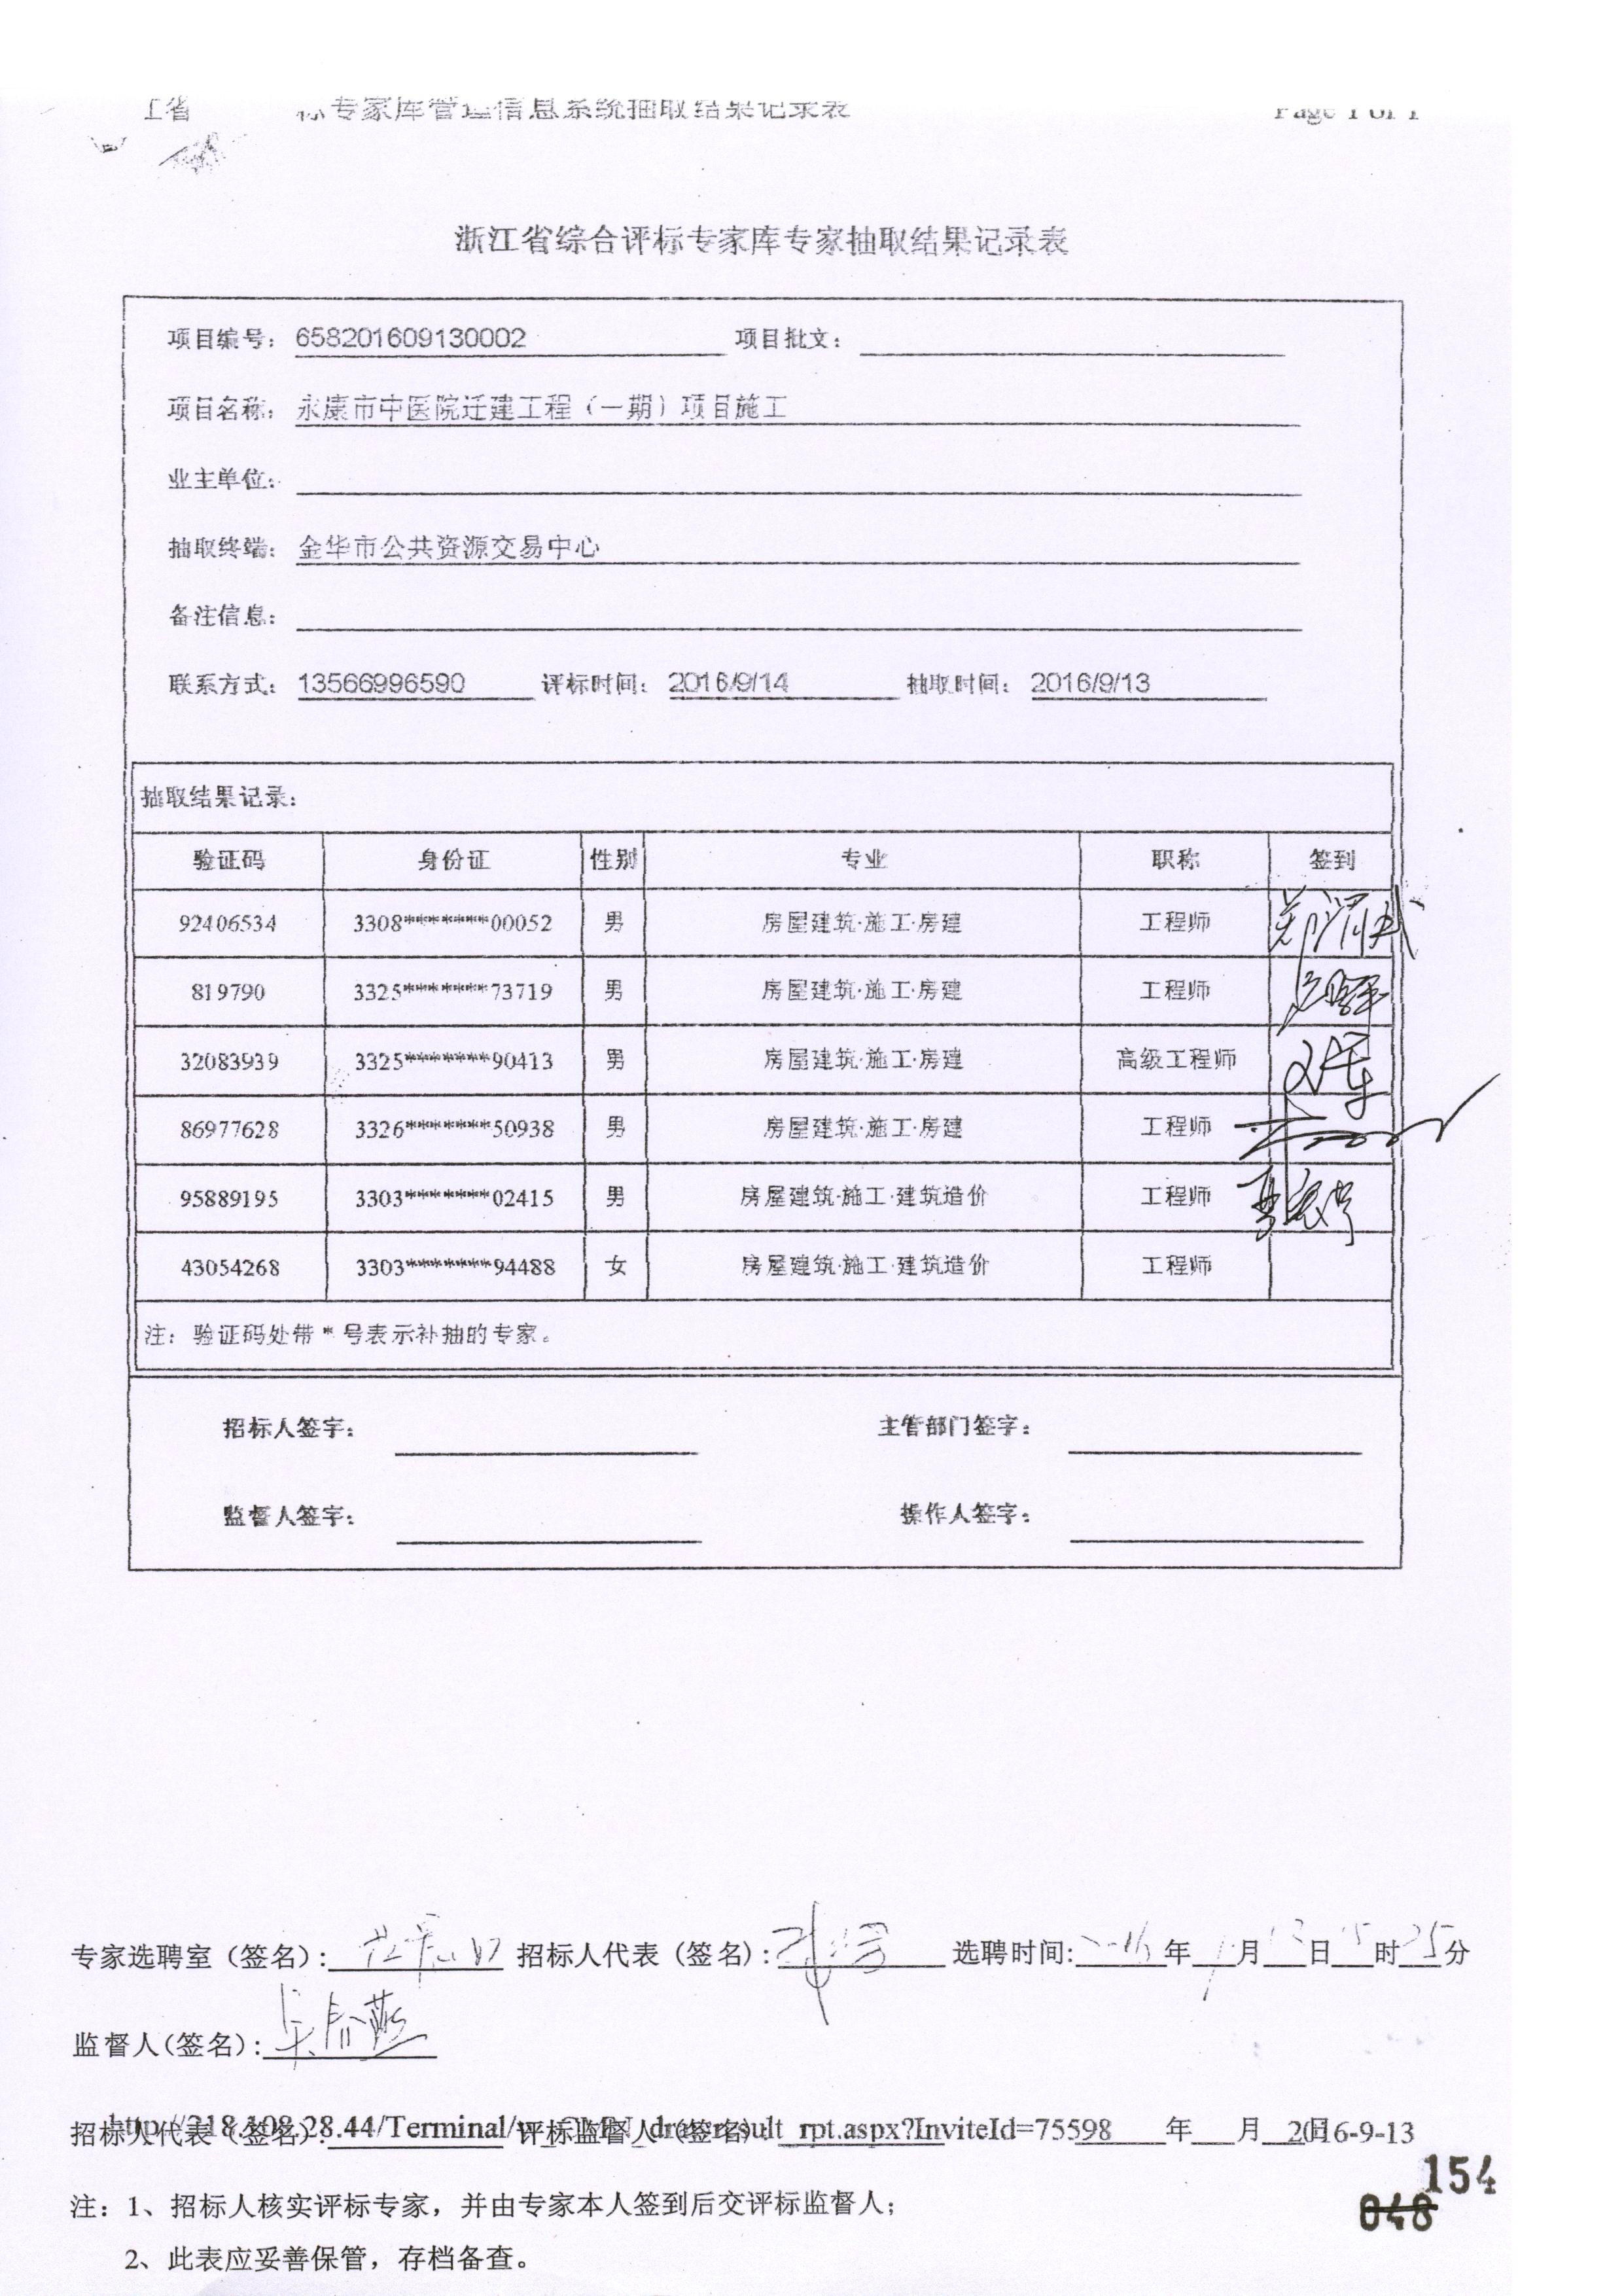 专家库管理信息系统抽取结果记录表 Page 1 of 1
浙江省综合评标专家库专家抽取结果记录表
项目编号： 658201609130002 项目批文：
项目名称： 永康市中医院迁建工程（一期）项目施工
业主单位：
抽取终端： 金华市公共资源交易中心
备注信息：
联系方式： 13566996590 评标时间： 2016/9/14 抽取时间： 2016/9/13
抽取结果记录：
验证码 身份证 性别 专业 职称 签到
92406534 3308********00052 男 房屋建筑·施工·房建 工程师
819790 3325********73719 男 房屋建筑·施工·房建 工程师
32083939 3325********90413 男 房屋建筑·施工·房建 高级工程师
86977628 3326********50938 男 房屋建筑·施工·房建 工程师
95889195 3303********02415 男 房屋建筑·施工·建筑造价 工程师
43054268 3303********94488 女 房屋建筑·施工·建筑造价 工程师
注：验证码处带*号表示补抽的专家。
招标人签字： 主管部门签字：
监督人签字： 操作人签字：
专家选聘室（签名）: 招标人代表（签名）: 选聘时间: 年 月 日 时 25分
监督人(签名):
招标人代表（签名）: 评标监督人（签名）: 年 月 日
rpt.aspx?InviteId=75598 2016-9-13
154
048
注：1、招标人核实评标专家，并由专家本人签到后交评标监督人；
2、此表应妥善保管，存档备查。